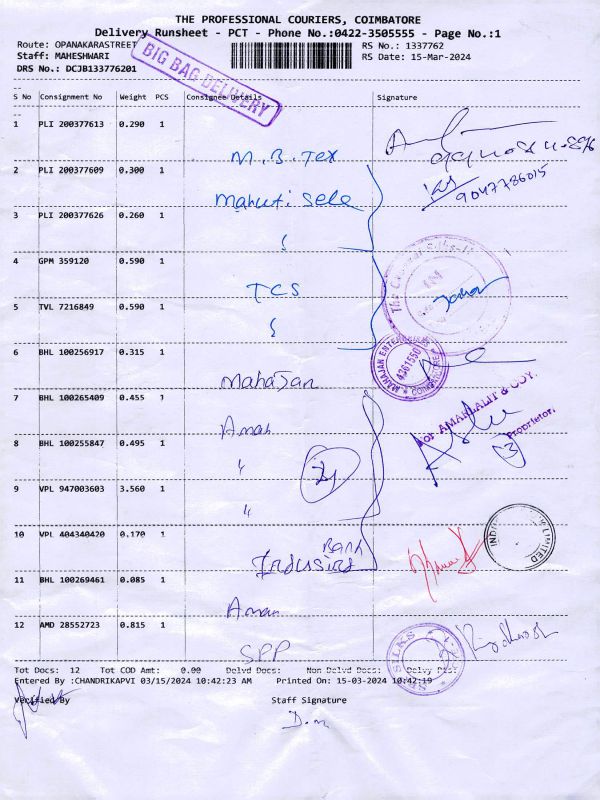 THE PROFESSIONAL COURIERS, COIMBATORE
Delivery Runsheet - PCT - Phone No.:0422-3505555 - Page No.:1
Route: OPANAKARASTREET
RS No.: 1337762
Staff: MAHESHWARI
RS Date: 15-Mar-2024
DRS No.: DCJB133776201
BIG BAG DELIVERY
S No Consignment No Weight PCS Consignee Details Signature
1 PLI 200377613 0.290 1
M.B.Tex
2 PLI 200377609 0.300 1
9047786015
Mahuti sele
3 PLI 200377626 0.260 1
"
4 GPM 359120 0.590 1
TCS
5 TVL 7216849 0.590 1
"
6 BHL 100256917 0.315 1
MAHAJAN ENTERPRISES
4361550
COIMBATORE
Mahajan
7 BHL 100265409 0.455 1
For AMAR LALIT & COY.
Proprietor.
Aman
8 BHL 100255847 0.495 1
"
9 VPL 947003603 3.560 1
"
10 VPL 404340420 0.170 1
Indusind Bank
11 BHL 100269461 0.085 1
Aman
12 AMD 28552723 0.815 1
SPP
Tot Docs: 12 Tot COD Amt: 0.00 Delvd Docs: Non Delvd Docs: Delvy Pis:
Entered By :CHANDRIKAPVI 03/15/2024 10:42:23 AM Printed On: 15-03-2024 10:42:19
Verified By Staff Signature
D.m